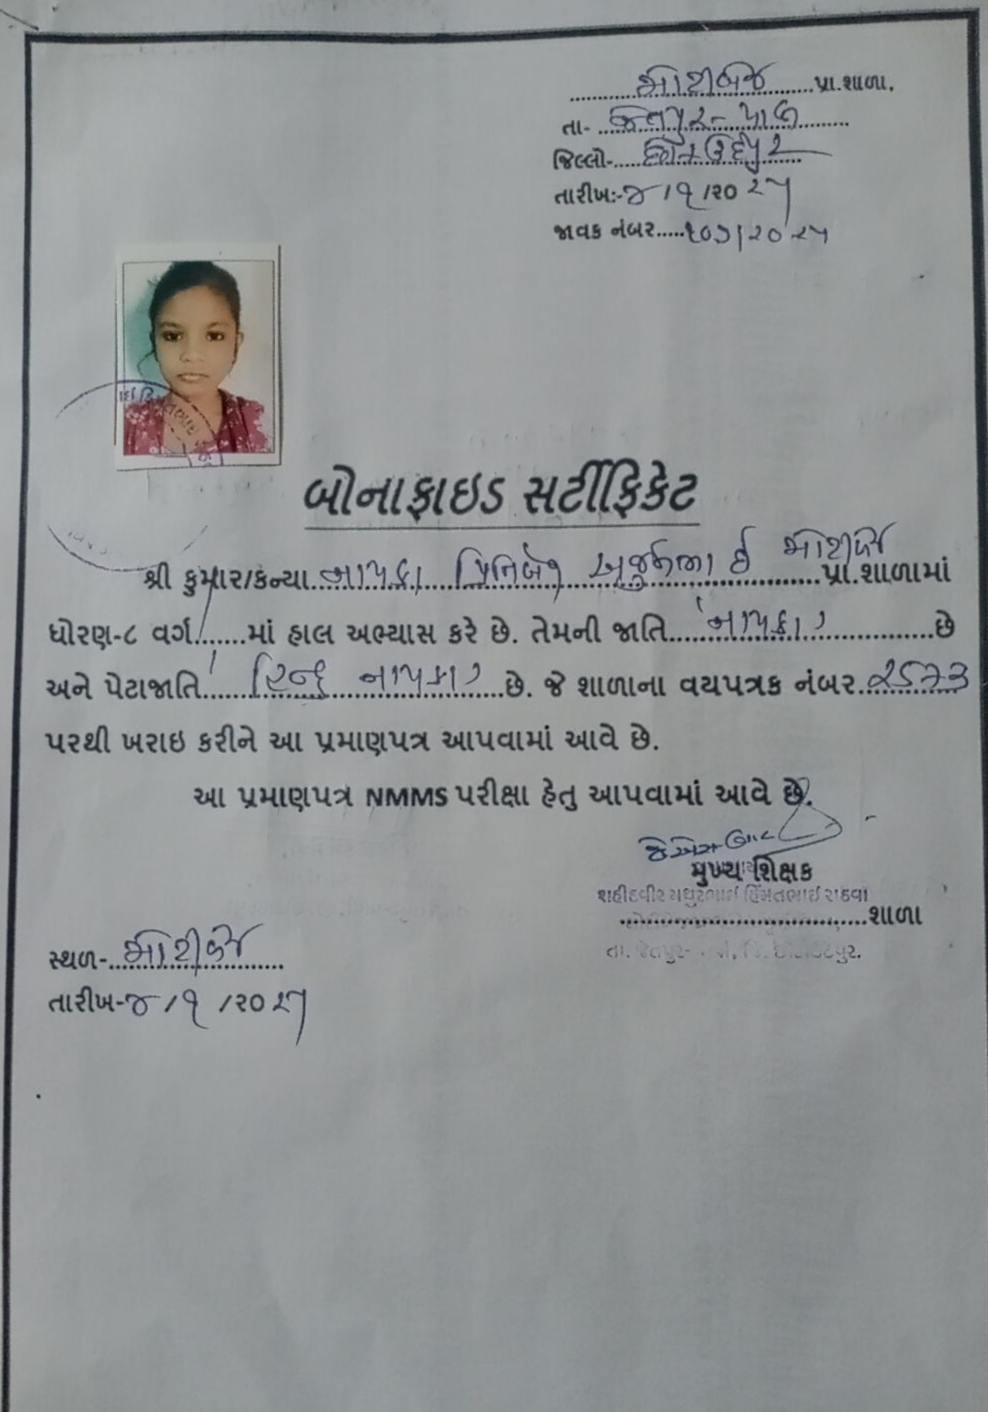 મોટીબેજ પ્રા.શાળા.
તા- જેતપુર-પાવી
જિલ્લો- છોટાઉદેપુર
તારીખ:-૪/૧/૨૦૨૫
જાવક નંબર.....૧૦૭/૨૦૨૫
બોનાફાઇડ સર્ટીફિકેટ
શ્રી કુમાર/કન્યા નાયકા પ્રિતિબેન અર્જુનભાઈ મોટીબેજ પ્રા.શાળામાં
ધોરણ-૮ વર્ગ.......માં હાલ અભ્યાસ કરે છે. તેમની જાતિ નાયકા છે
અને પેટાજાતિ હિન્દુ નાયકા છે. જે શાળાના વયપત્રક નંબર 2573
પરથી ખરાઇ કરીને આ પ્રમાણપત્ર આપવામાં આવે છે.
આ પ્રમાણપત્ર NMMS પરીક્ષા હેતુ આપવામાં આવે છે.
મુખ્ય શિક્ષક
શહીદવીર મથુરભાઈ હિંમતભાઈ રાઠવા
શાળા
તા. જેતપુર- જિ. છોટાઉદેપુર.
સ્થળ- મોટીબેજ
તારીખ-૪/૧/૨૦૨૫